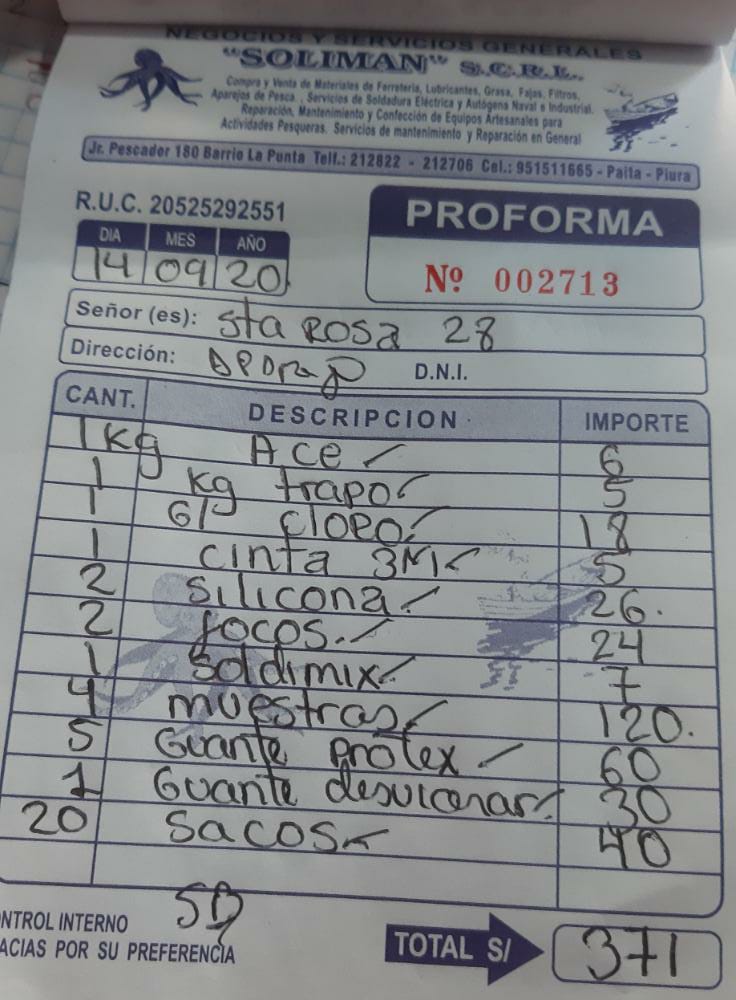 NEGOCIOS Y SERVICIOS GENERALES
"SOLIMAN" S.C.R.L.
Compra y Venta de Materiales de Ferretería, Lubricantes, Grasa, Fajas, Filtros,
Aparejos de Pesca, Servicios de Soldadura Eléctrica y Autógena Naval e Industrial.
Reparación, Mantenimiento y Confección de Equipos Artesanales para
Actividades Pesqueras. Servicios de mantenimiento y Reparación en General
Jr. Pescador 180 Barrio La Punta Telf.: 212822 - 212706 Cel.: 951511665 - Paita - Piura
R.U.C. 20525292551
PROFORMA
DIA MES AÑO
14 09 20
Nº 002713
Señor (es): Sta Rosa 28
Dirección: D.N.I.
CANT. DESCRIPCION IMPORTE
1 kg Ace 6
1 kg trapo 5
1 Gl cloro 18
1 cinta 3M 5
2 silicona 26.
2 focos. 24
1 Soldimix 7
4 muestras 120.
5 Guante protex 60
1 Guante 30
20 sacos 40
NTROL INTERNO
ACIAS POR SU PREFERENCIA
TOTAL S/ 371